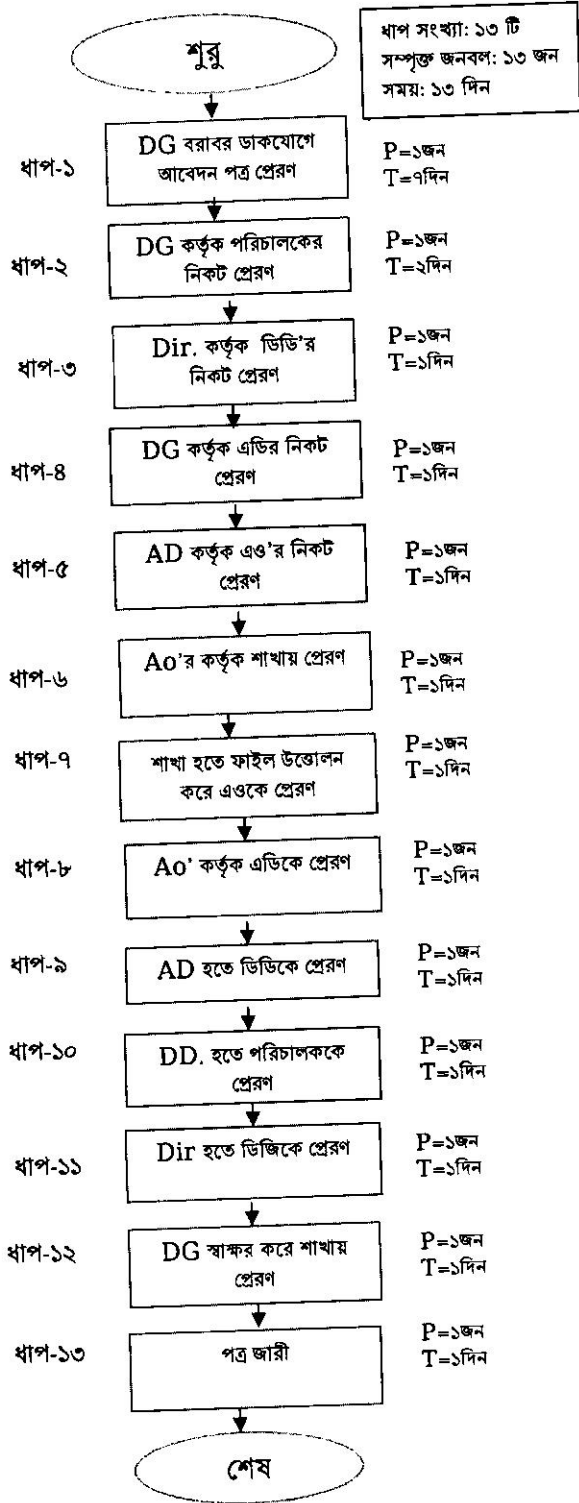 শুরু
ধাপ সংখ্যা: ১৩ টি
সম্পৃক্ত জনবল: ১৩ জন
সময়: ১৩ দিন
ধাপ-১
DG বরাবর ডাকযোগে
আবেদন পত্র প্রেরণ
P=১জন
T=৭দিন
ধাপ-২
DG কর্তৃক পরিচালকের
নিকট প্রেরণ
P=১জন
T=২দিন
ধাপ-৩
Dir. কর্তৃক ডিডি'র
নিকট প্রেরণ
P=১জন
T=১দিন
ধাপ-৪
DG কর্তৃক এডির নিকট
প্রেরণ
P=১জন
T=১দিন
ধাপ-৫
AD কর্তৃক এও'র নিকট
প্রেরণ
P=১জন
T=১দিন
ধাপ-৬
Ao'র কর্তৃক শাখায় প্রেরণ
P=১জন
T=১দিন
ধাপ-৭
শাখা হতে ফাইল উত্তোলন
করে এওকে প্রেরণ
P=১জন
T=১দিন
ধাপ-৮
Ao' কর্তৃক এডিকে প্রেরণ
P=১জন
T=১দিন
ধাপ-৯
AD হতে ডিডিকে প্রেরণ
P=১জন
T=১দিন
ধাপ-১০
DD. হতে পরিচালককে
প্রেরণ
P=১জন
T=১দিন
ধাপ-১১
Dir হতে ডিজিকে প্রেরণ
P=১জন
T=১দিন
ধাপ-১২
DG স্বাক্ষর করে শাখায়
প্রেরণ
P=১জন
T=১দিন
ধাপ-১৩
পত্র জারী
P=১জন
T=১দিন
শেষ